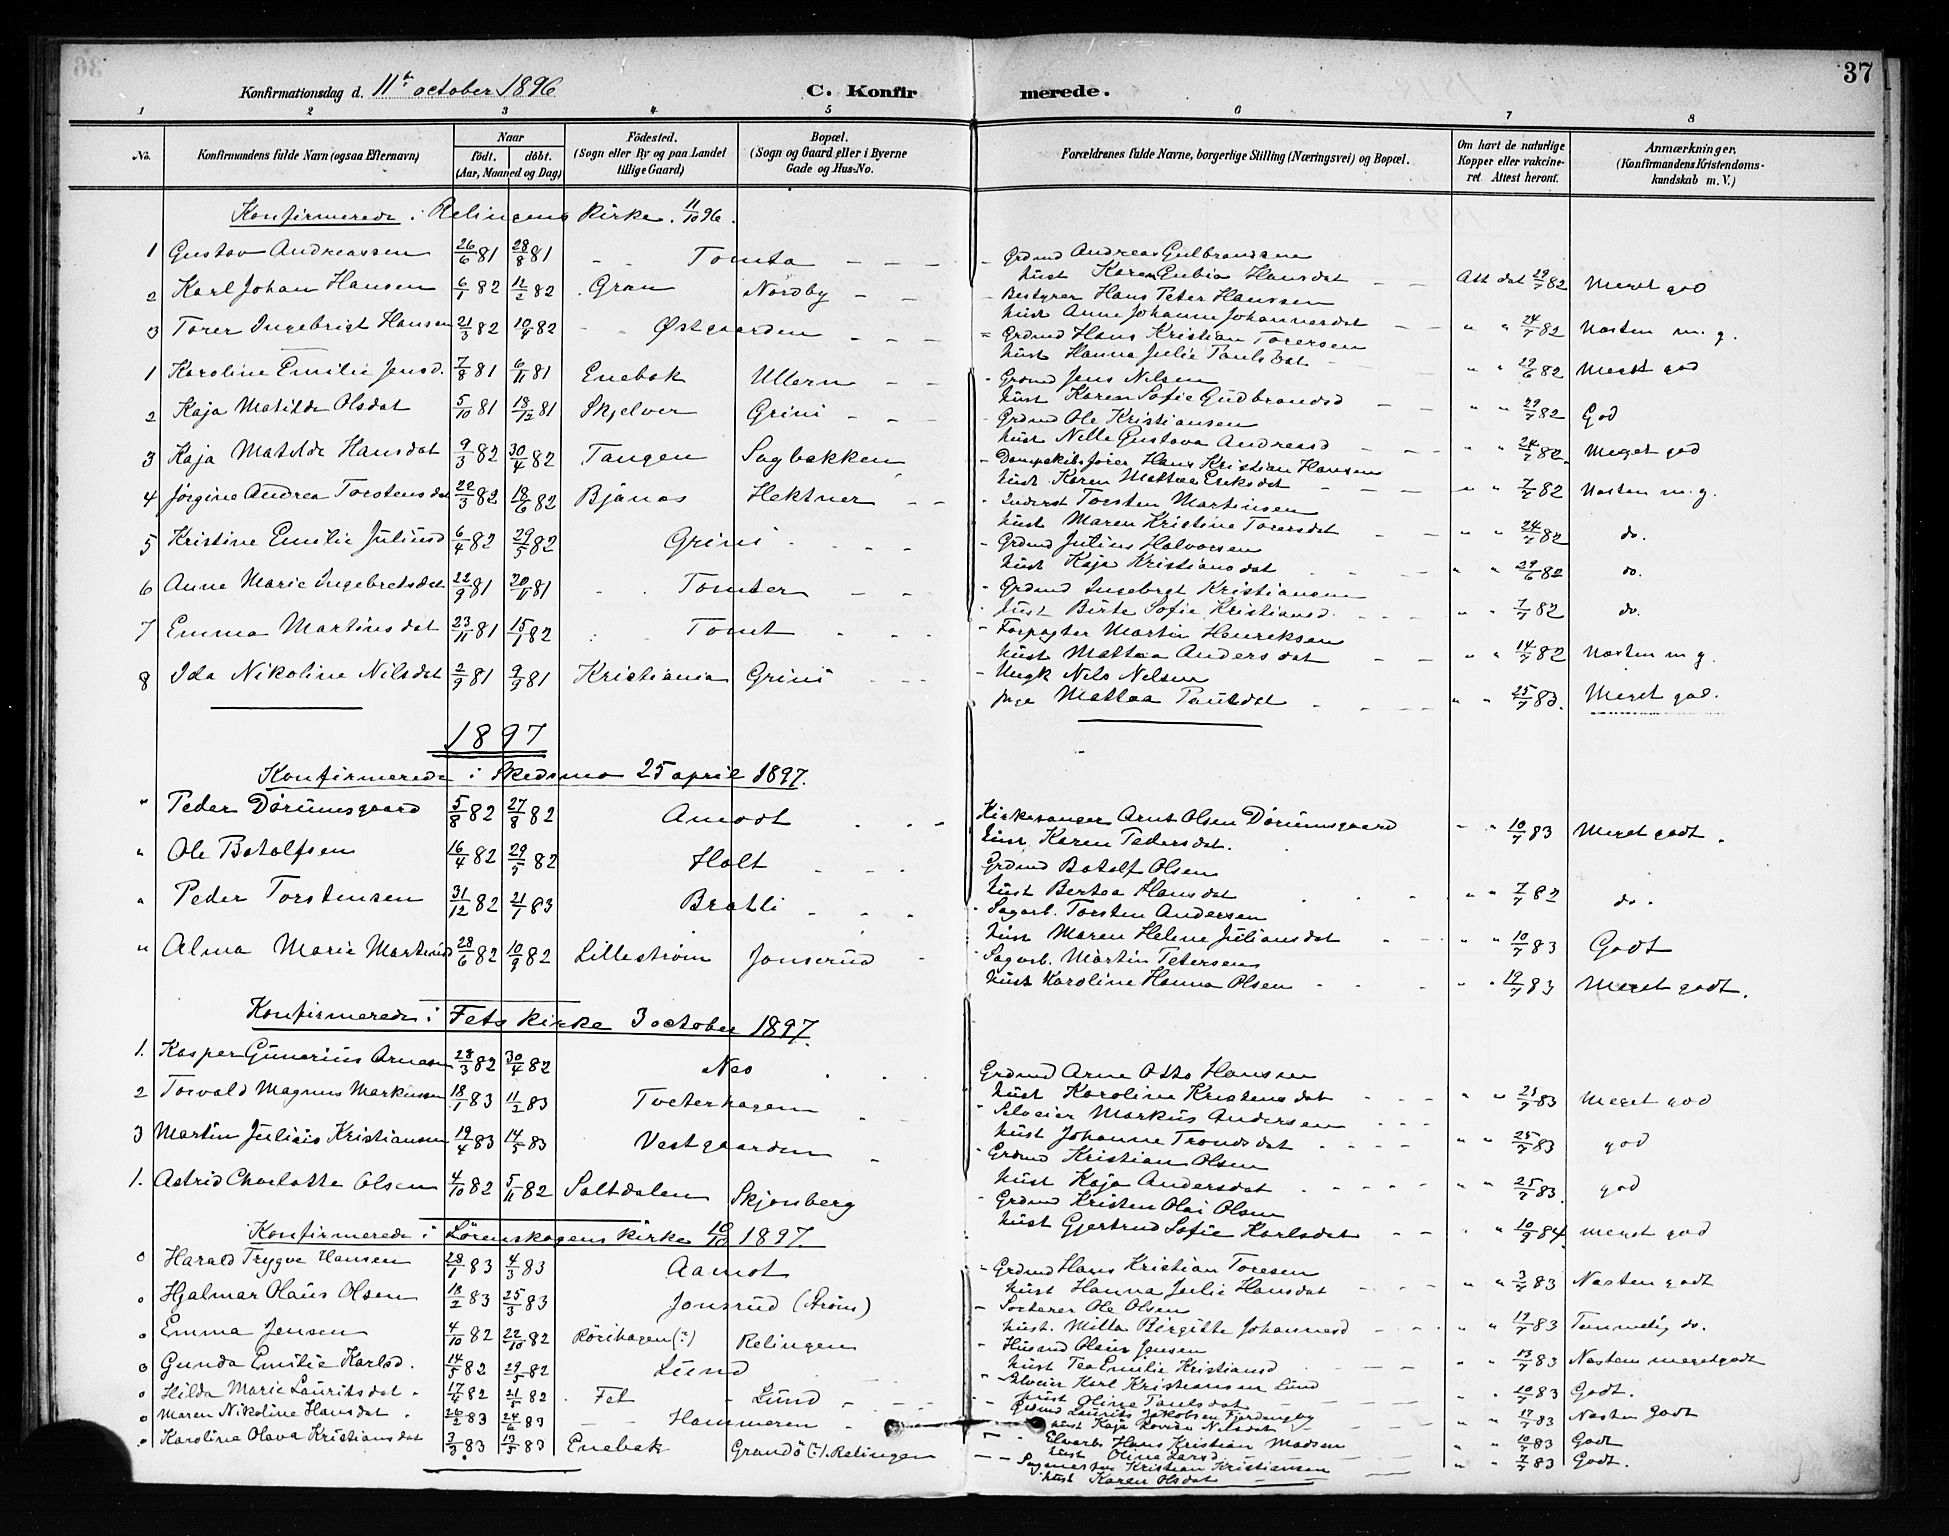 37
Konfirmationsdag d. 11te october 1896 C. Konfirmerede.
1 2 3 4 5 6 7 8
No.
Konfirmandens fulde Navn (ogsaa Efternavn)
Naar
födt. döbt.
(Aar, Maaned og Dag)
Födested.
(Sogn eller By og paa Landet
tillige Gaard)
Bopæl.
(Sogn og Gaard eller i Byerne
Gade og Hus-No.
Forældrenes fulde Navne, borgerlige Stilling (Næringsvei) og Bopæl.
Om havt de naturlige
Kopper eller vakcineret. Attest herom.
Anmærkninger.
(Konfirmandens Kristendomskundskab m. V.)
Konfirmerede i Relingens Kirke 11/10 96.
1 Gustav Andreassen 26/6 81 28/8 81 - - Tomta - - -
- Grdmd Andreas Gulbrandsen
hust Karen Gubia Hansdat - - Att dat 29/7 82 Meget god
2 Karl Johan Hansen 6/1 82 12/2 82 Gran Nordby - -
- Bestyrer Hans Peter Hanssen
hust Anne Johanne Johannesdat - - " " 24/7 82 Næsten m. g.
3 Torer Ingebrigt Hansen 21/3 82 10/4 82 - - Østgaarden - - -
- Grdmd Hans Kristian Torersen
hust Hanna Julie Paulsdat - - " " 29/6 82 Meget god
1 Karoline Emilie Jensd. 7/8 81 6/11 81 Enebak Ullern - -
- Grdmd Jens Nilsen
hust Karen Sofie Gudbrandsd - - " " 29/7 82 God
2 Kaja Matilde Olsdat 5/10 81 18/12 81 Skjelver Grini - -
- Grdmd Ole Kristiansen
hust Nelle Gustava Andreasd - - " " 24/7 82. Meget god
3 Kaja Matilde Hansdat 9/3 82 30/4 82 Tangen Sagbakken
- Dampskibsfører Hans Kristian Hansen
hust Karen Mathea Eriksdat - - " " 7/7 82 Næsten m. g.
4 Jørgine Andrea Torstensdat 22/3 82 18/6 82 Bjånas Hektner - -
- Inderst Torsten Martinsen
hust Maren Kristine Torersdat - - " " 24/7 82 do.
5 Kristine Emilie Juliusd 6/4 82 29/5 82 Grini - - -
- Grdmd Julius Halvorsen
hust Kaja Kristiansdat - - " " 29/6 82 do.
6 Anne Marie Ingebretsdat 22/9 81 20/11 81 - - Tomter - -
- Grdmd Ingebret Kristiansen
hust Birte Sofie Kristiansd. - - " " 7/7 82 do.
7 Emma Martinsdat 23/11 81 15/1 82 - - Tomt - - -
- Forpagter Martin Henriksen
hust Mattea Andersdat - - " " 14/7 82 Næsten m g.
8 Ida Nikoline Nilsdat 2/9 81 9/9 81 Kristiania Grini - - -
- Ungk Nils Nelsen
pige Mattea Paulsdat - - " " 25/7 83. Meget god.
1897
Konfirmerede i Skedsmo 25 april 1897.
" Peder Dørumsgaard 5/8 82 27/8 82 Amodt - - -
Kirkesanger Arnt Olsen Dørumsgaard
hust Karen Pedersdat. - " 10/7 83 Meget godt.
" Ole Botolfsen 16/4 82 29/5 82 Holt - - -
Grdmd Botolf Olsen
hust Bertea Hansdat - - " " 7/7 82 do.
" Peder Torstensen 31/12 82 21/1 83 Bratli - - -
- Sagarb. Torsten Andersen
hust Maren Helene Juliansdat - - " " 10/7 83 Godt
" Alma Marie Martinsd 28/6 82 10/9 82 Lillestrøm Jonsrud -
- Sagarb. Martin Petersen
hust Karoline Hanna Olsen - - " " 19/7 83 Meget godt.
Konfirmerede i Fets Kirke 3 october 1897.
1. Kasper Gunerius Arnesen 28/3 82 30/4 82 Nes - -
Grdmd Arne Otto Hansen
hust Karoline Kristensdat - - " " 21/7 83 Meget god
2 Torvald Magnus Markussen 18/1 83 11/2 83 Toeterhagen - -
- Selveier Markus Andersen - - -
hust Johanne Trondsdat - - " " 25/7 83 god
3 Martin Julius Kristiansen 19/4 83 14/5 83 Vestgaarden -
- Grdmd Kristian Olsen
hust Kaja Andersdat - - " " 25/7 83. god
1. Astrid Charlotte Olsen 4/10 82 5/11 82 Saltdalen Skjønberg
- Grdmd Kristen Olai Olsen
hust Gjertrud Sofie Karlsdat - - " 10/9 84. meget god
Konfirmerede i Lørenskogens Kirke 10/10 1897.
o Harald Trygve Hansen 28/1 83 4/3 83 Aamot
- Grdmd Hans Kristian Toresen
hust Hanna Julie Hansdat - - " " 3/7 83 Næsten godt
o Hjalmar Olaus Olsen 18/2 83 25/3 83 Jonsrud (Strøm)
- Sorterer Ole Olsen
hust. Milla Birgitte Johannesd - - " " 19/7 83 Temmelig do.
o Emma Jensen 4/10 82 22/10 82 Rörihagen (:) Relingen
- Husmd Olaus Jensen
hust Tea Emilie Kristiansd - - " " 13/7 83 Næsten meget godt
o Gunda Emilie Karlsd. 14/5 82 29/5 82 Lund
- Selveier Karl Kristiansen Lund
hust Oline Paulsdat - - " 10/7 83 Godt.
o Hilda Marie Lauritsdat - 17/4 82 21/5 82 - Fet - Lund - - -
- Grdmd Laurits Jakobsen Fjerdingby
hust Kaja Lovise Nilsdat - - " 17/7 83 Næsten Godt
o Maren Nikoline Hansdat 26/2 83 24/6 83 - - Hammeren -
- Elvarb. Hans Kristian Madsen
hust Oline Larsd - - " " 10/7 83 Godt
o Karoline Olava Kristiansdat 3/3 83 13/5 83 Enebak Grandö (:). Relingen
- - Sagmester Kristian Kristiansen
hust Karen Olsdat - - " " 7/7 83 Godt.